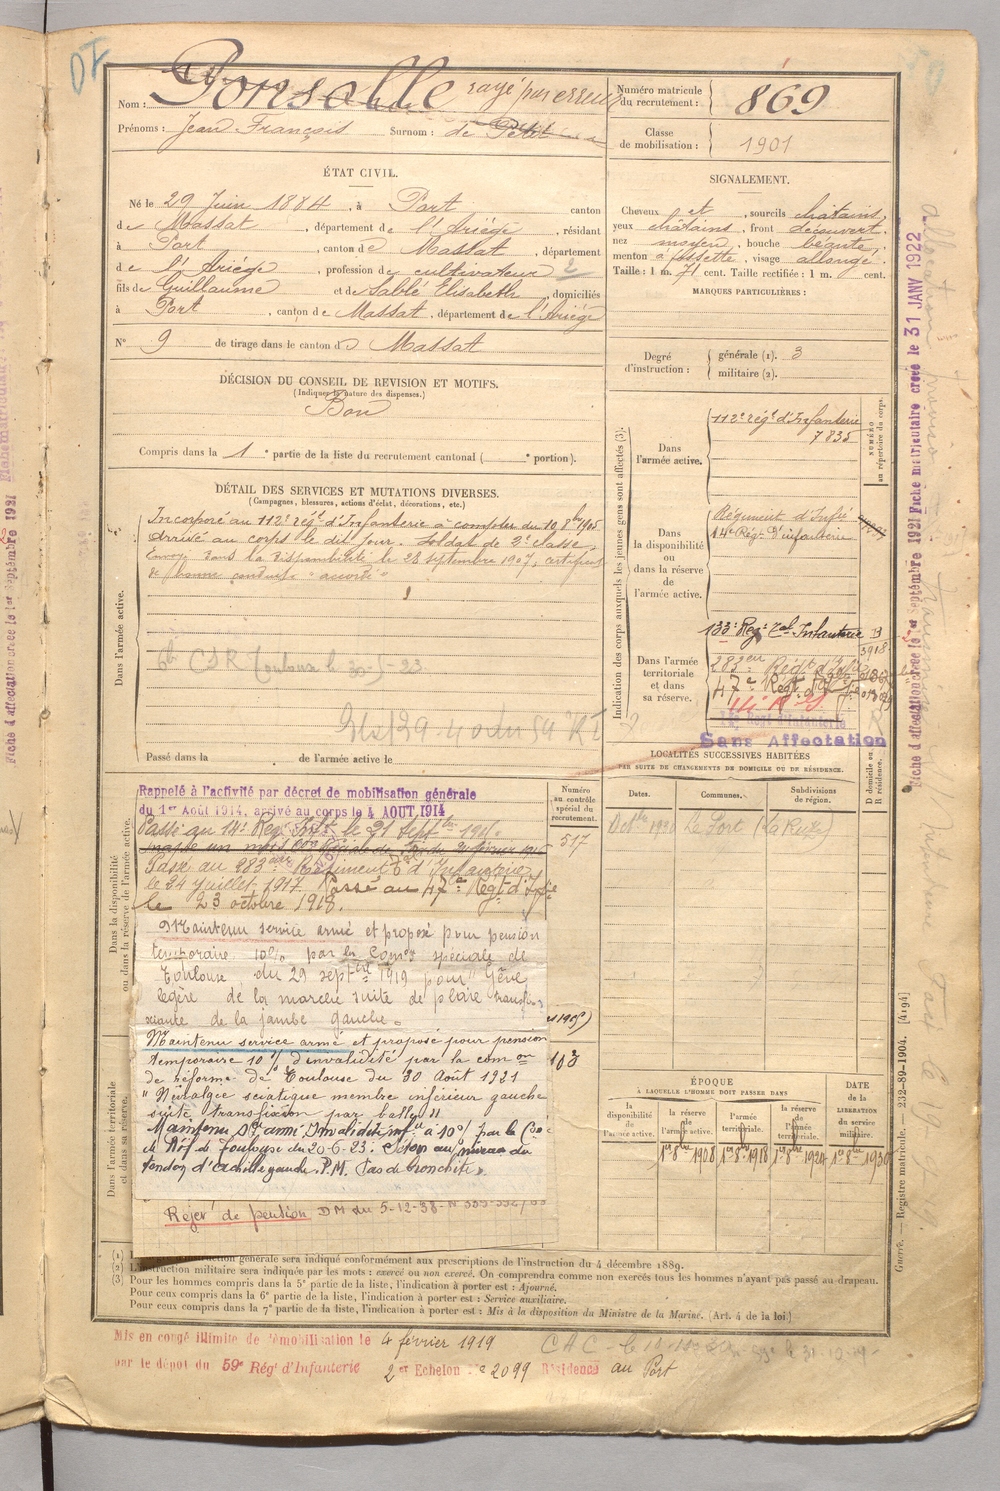 Nom : Ponsolle rayé par erreur
Prénoms : Jean François Surnom : de Petit
Numéro matricule du recrutement : 869
Classe de mobilisation : 1901
ÉTAT CIVIL.
Né le 29 Juin 1884, à Port canton
de Massat, département de l'Ariège, résidant
à Port, canton de Massat, département
de l'Ariège, profession de cultivateur 2
fils de Guillaume et de Sablé Elisabeth, domiciliés
à Port, canton de Massat, département de l'Ariège
N° 9 de tirage dans le canton de Massat
SIGNALEMENT.
Cheveux et, sourcils châtains,
yeux châtains, front découvert,
nez moyen, bouche béante,
menton à fossette, visage allongé.
Taille : 1 m. 71 cent. Taille rectifiée : 1 m. cent.
MARQUES PARTICULIÈRES :
Degré d'instruction : générale (1). 3
militaire (2).
DÉCISION DU CONSEIL DE REVISION ET MOTIFS.
(Indiquer la nature des dispenses.)
Bon
Compris dans la 1e partie de la liste du recrutement cantonal ( e portion).
DÉTAIL DES SERVICES ET MUTATIONS DIVERSES.
(Campagnes, blessures, actions d'éclat, décorations, etc.)
Dans l'armée active.
Incorporé au 112e régt d'Infanterie à compter du 10 8bre 1905.
Arrivé au corps le dit jour. Soldat de 2e classe.
Envoyé dans la disponibilité le 28 septembre 1907, certificat
de bonne conduite "accordé"
CSR Toulouse le 30-5-23
Passé dans la de l'armée active le
Indication des corps auxquels les jeunes gens sont affectés (3).
NUMÉRO au répertoire du corps.
Dans l'armée active.
112e régt d'Infanterie
7835
Dans la disponibilité ou dans la réserve de l'armée active.
Régiment d'Infie
14e Rég. d'infanterie
Dans l'armée territoriale et dans sa réserve.
133e Regt Tal Infanterie
3918
283eme Régt d'Infie
47e Regt d'Infie
Sans Affectation
LOCALITÉS SUCCESSIVES HABITÉES
PAR SUITE DE CHANGEMENTS DE DOMICILE OU DE RÉSIDENCE.
D domicile ou R résidence.
Dates. Communes. Subdivisions de région.
Le Port
Dans la disponibilité ou dans la réserve de l'armée active.
Numéro au contrôle spécial du recrutement.
517
Rappelé à l'activité par décret de mobilisation générale
du 1er Août 1914, arrivé au corps le 4 AOUT 1914
Passé au 14e Reg. Inft le 21 septbre
Passé au 283eme Régiment d'Infanterie
le 24 Juillet 1917 Passé au 47e Regt d'Infie
le 23 octobre 1918.
Maintenu service armé et proposé pour pension
temporaire 10% par la Comon spéciale de
Toulouse du 29 septbre 1919 pour "Gêne
légère de la marche suite de plaie transfi-
xiante de la jambe gauche.
Maintenu service armé et proposé pour pension
temporaire 10% d'invalidité par la comon
de réforme de Toulouse du 30 Août 1921
"Névralgie sciatique membre inférieur gauche
suite transfixion par balle"
Maintenu Sce armé Invalidité infre à 10% par la Con
de Réf. de Toulouse du 20-6-23. Séton au niveau du
tendon d'achille gauche. P.M. Pas de bronchite.
Rejet de pention DM du 5-12-38
103
Dans l'armée territoriale et dans sa réserve.
ÉPOQUE
À LAQUELLE L'HOMME DOIT PASSER DANS
la disponibilité de l'armée active.
la réserve de l'armée active.
l'armée territoriale.
la réserve de l'armée territoriale.
DATE de la LIBÉRATION du service militaire.
1er 8bre 1908 1er 8bre 1918 1er 8bre 1924 1er 8bre 1930
(1) L'instruction générale sera indiqué conformément aux prescriptions de l'instruction du 4 décembre 1889.
(2) L'instruction militaire sera indiquée par les mots : exercé ou non exercé. On comprendra comme non exercés tous les hommes n'ayant pas passé au drapeau.
(3) Pour les hommes compris dans la 5e partie de la liste, l'indication à porter est : Ajourné.
Pour ceux compris dans la 6e partie de la liste, l'indication à porter est : Service auxiliaire.
Pour ceux compris dans la 7e partie de la liste, l'indication à porter est : Mis à la disposition du Ministre de la Marine. (Art. 4 de la loi.)
Mis en congé illimité de démobilisation le 4 février 1919
par le dépôt du 59e Rég' d'Infanterie 2e Echelon 2099 Résidence au Port
Guerre. — Registre matricule. — 232-89-1904. [4194]
Fiche d'affectation créée le 1er Septembre 1921 Fiche matriculaire créée le 31 JANV 1922